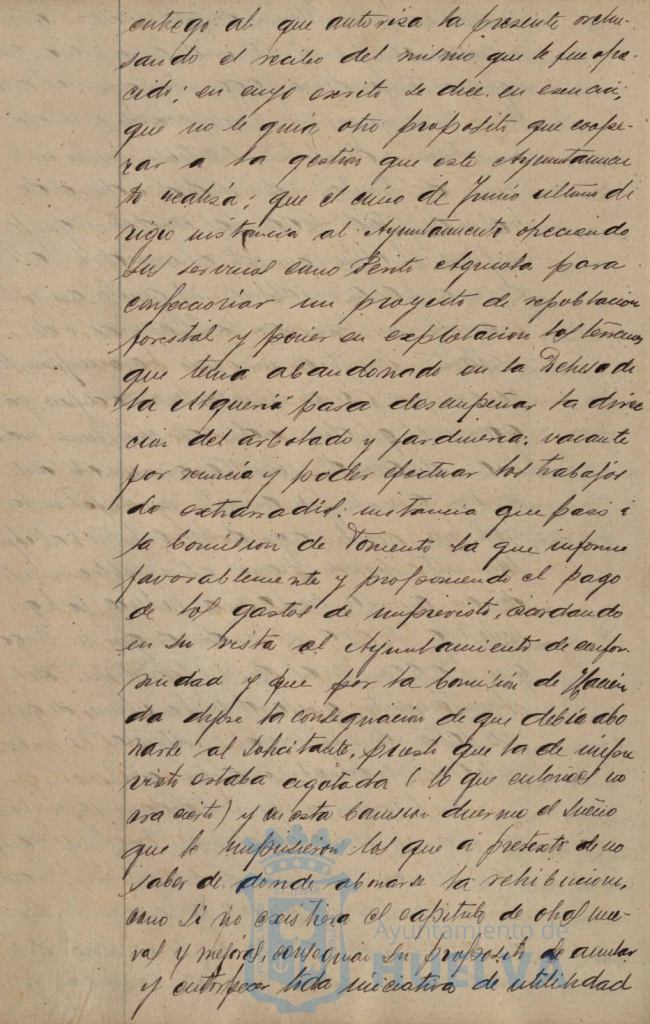 entregó al que autorisa la presente rehu-
sando el recibo del mismo que le fue ofre-
cido; en cuyo escrito se dice en esencia,
que no le guia otro proposito que coope-
rar a la gestion que este Ayuntamien
to realisa; que el cinco de Junio ultimo di
rigio instancia al Ayuntamiento ofreciendo
sus servicios como Perito Agricola para
confeccionar un proyecto de repoblacion
forestal y poner en explotacion los terrenos
que tenia abandonado en la Dehesa de
la Alqueria" para desempeñar la direc
cion del arbolado y jardineria, vacante
por renuncia y poder efectuar los trabajos
do extrarradio: instancia que pasó á
la Comision de Fomento la que informó
favorablemente y proponiendo el pago
de los gastos de imprevisto, acordando
en su vista el Ayuntamiento de confor-
midad y que por la Comisión de Hacien
da dijese la consignacion de que debia abo
narse al solicitante, puesto que la de impre
visto estaba agotada (lo que entonces no
era cierto) y en esta Comision duerme el sueño
que le impusieron los que á pretexto de no
saber de donde abonarse la retribucion,
como si no existiera el capitulo de obras nue-
vas y mejoras, conseguian su proposito de anular
y entorpecer toda iniciativa de utilidad
Ayuntamiento de
HUELVA